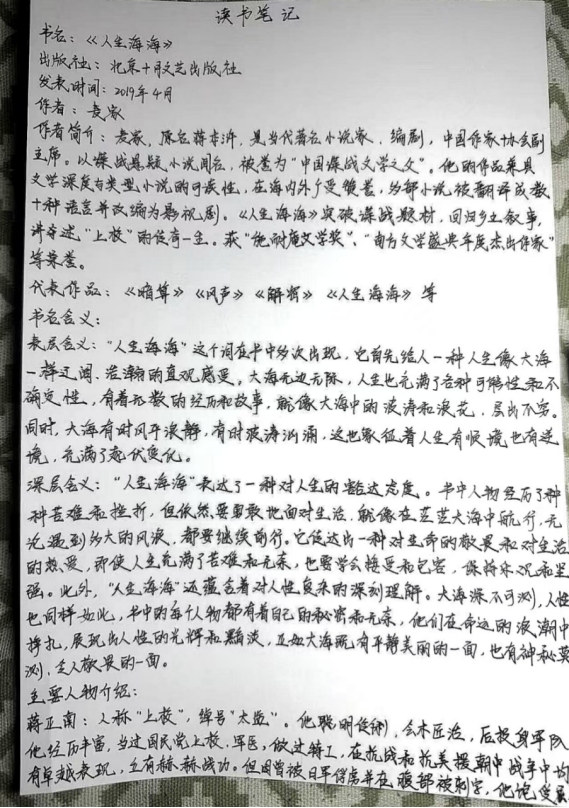 读书笔记
书名：《人生海海》
出版社：北京十月文艺出版社
发表时间：2019年4月
作者：麦家
作者简介：麦家，原名蒋本浒，是当代著名小说家，编剧，中国作家协会副
主席。以谍战悬疑小说闻名，被誉为“中国谍战文学之父”。他的作品兼具
文学深度与类型小说的可读性，在海内外广受赞誉，多部小说被翻译成数
十种语言并改编为影视剧。《人生海海》突破谍战题材，回归乡土叙事，
讲述“上校”的传奇一生。获“施耐庵文学奖”、“南方文学盛典年度杰出作家”
等荣誉。
代表作品：《暗算》《风声》《解密》《人生海海》等
书名含义：
表层含义：“人生海海”这个词在书中多次出现，它首先给人一种人生像大海
一样辽阔、浩瀚的直观感受。大海无边无际，人生也充满了各种可能性和不
确定性，有着无数的经历和故事，就像大海中的波涛和浪花，层出不穷。
同时，大海有时风平浪静，有时波涛汹涌，这也象征着人生有顺境也有逆
境，充满了起伏变化。
深层含义：“人生海海”表达了一种对人生的豁达态度。书中人物经历了种
种苦难和挫折，但依然要勇敢地面对生活，就像在茫茫大海中航行，无
论遇到多大的风浪，都要继续前行。它传达出一种对生命的敬畏和对生活
的热爱，即使人生充满了苦难和无奈，也要学会接受和包容，保持乐观和坚
强。此外，“人生海海”还蕴含着对人性复杂的深刻理解。大海深不可测，人性
也同样如此，书中的每个人物都有着自己的秘密和无奈，他们在命运的浪潮中
挣扎，展现出人性的光辉和黯淡，正如大海既有平静美丽的一面，也有神秘莫
测、令人敬畏的一面。
主要人物介绍：
蒋正南：人称“上校”，绰号“太监”。他聪明俊俏，会木匠活，后投身军队
他经历丰富，当过国民党上校、军医，做过特工，在抗战和抗美援朝中战争中均
有卓越表现，立有赫赫战功。但因曾被日军俘虏并在腹部被刺字，他饱受